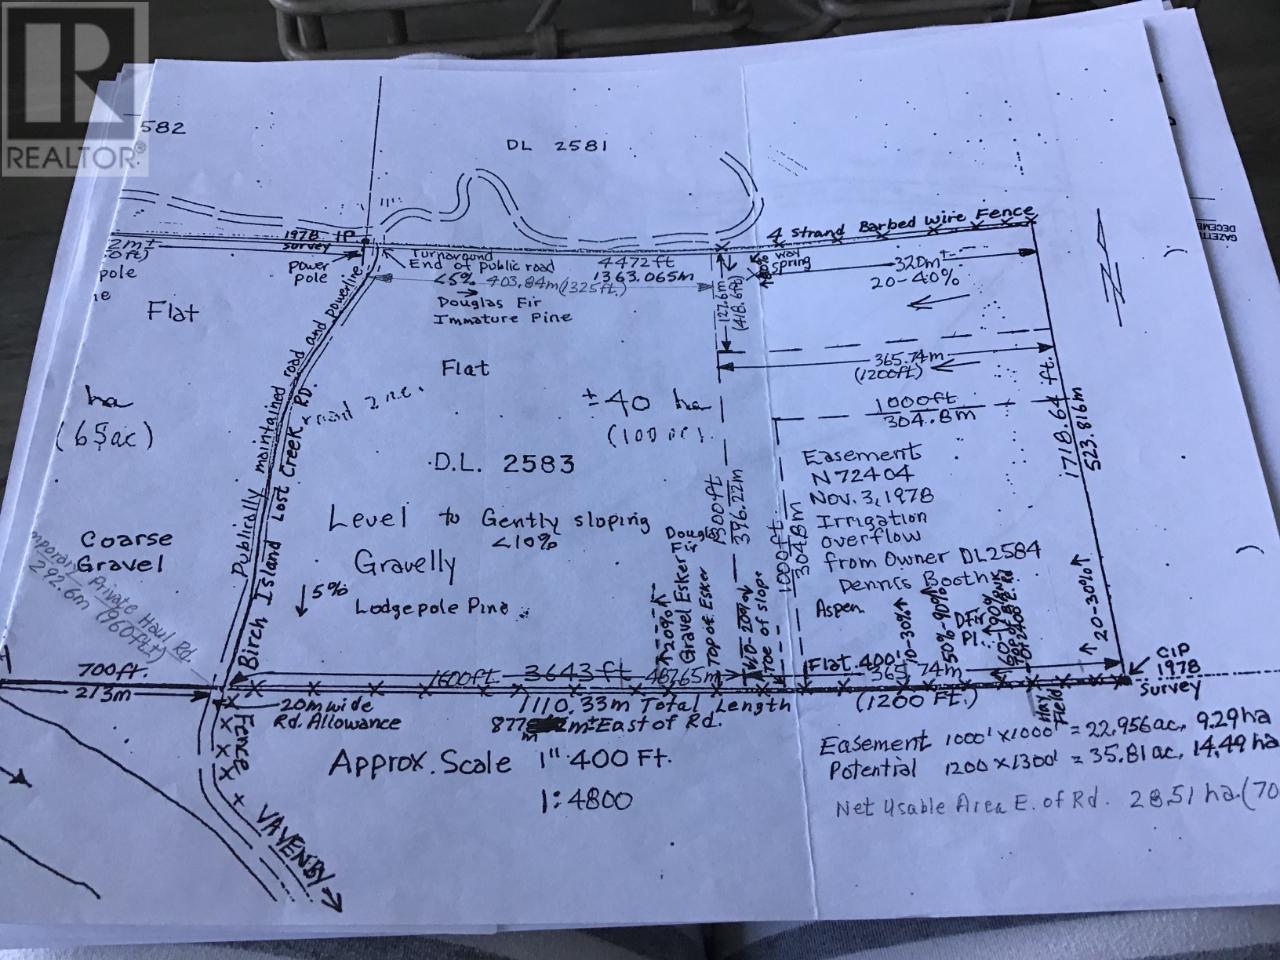 REALTOR®
582
DL 2581
GAZETT
DECEMBE
4 Strand Barbed Wire Fence
1978
survey
IP
Power
pole
2m±
pole
Turnaround
End of Public road
<5% 403.84m (1325ft.)
4472ft
1363.065m
Douglas Fir
Immature Pine
way
spring
320m±
20-40%
127.6m
(418.6ft)
Flat
Flat
365.74m
(1200ft)
1000ft
304.8m
1718.64 ft.
523.816m
ha
(65ac)
±40 ha
(100 ac).
D.L. 2583
Publically maintained road and powerline
Birch Island Lost Creek RD.
Easement
N72404
Nov. 3, 1978
Irrigation
overflow
from Owner DL2584
Dennis Booth
Aspen.
1300ft
396.22m
1000ft
304.8m
Level to Gently sloping
<10%
Gravelly
Lodgepole Pine
5%
Coarse
Gravel
Private Haul Rd.
292.6m (960ft±)
Douglas
Fir
20%
Gravel Esker
Top of Esker
Toe of slope
10-30%
50%-90%
D Fir
Pl.
20-30%
Flat 400'
700ft.
213m
1600ft
3643 ft
365.74m
(1200 FT.)
CIP
1978
Survey
Hay
Field
20m wide
Rd. Allowance
1110.33m Total Length
East of Rd.
Fence
VAVENBY
Approx. Scale 1" 400 Ft.
1:4800
Easement 1000' x 1000' = 22.956ac, 9.29ha
Potential 1200 x 1300' = 35.81 ac, 14.49 ha
Net Usable Area E. of Rd. 28.51 ha (70